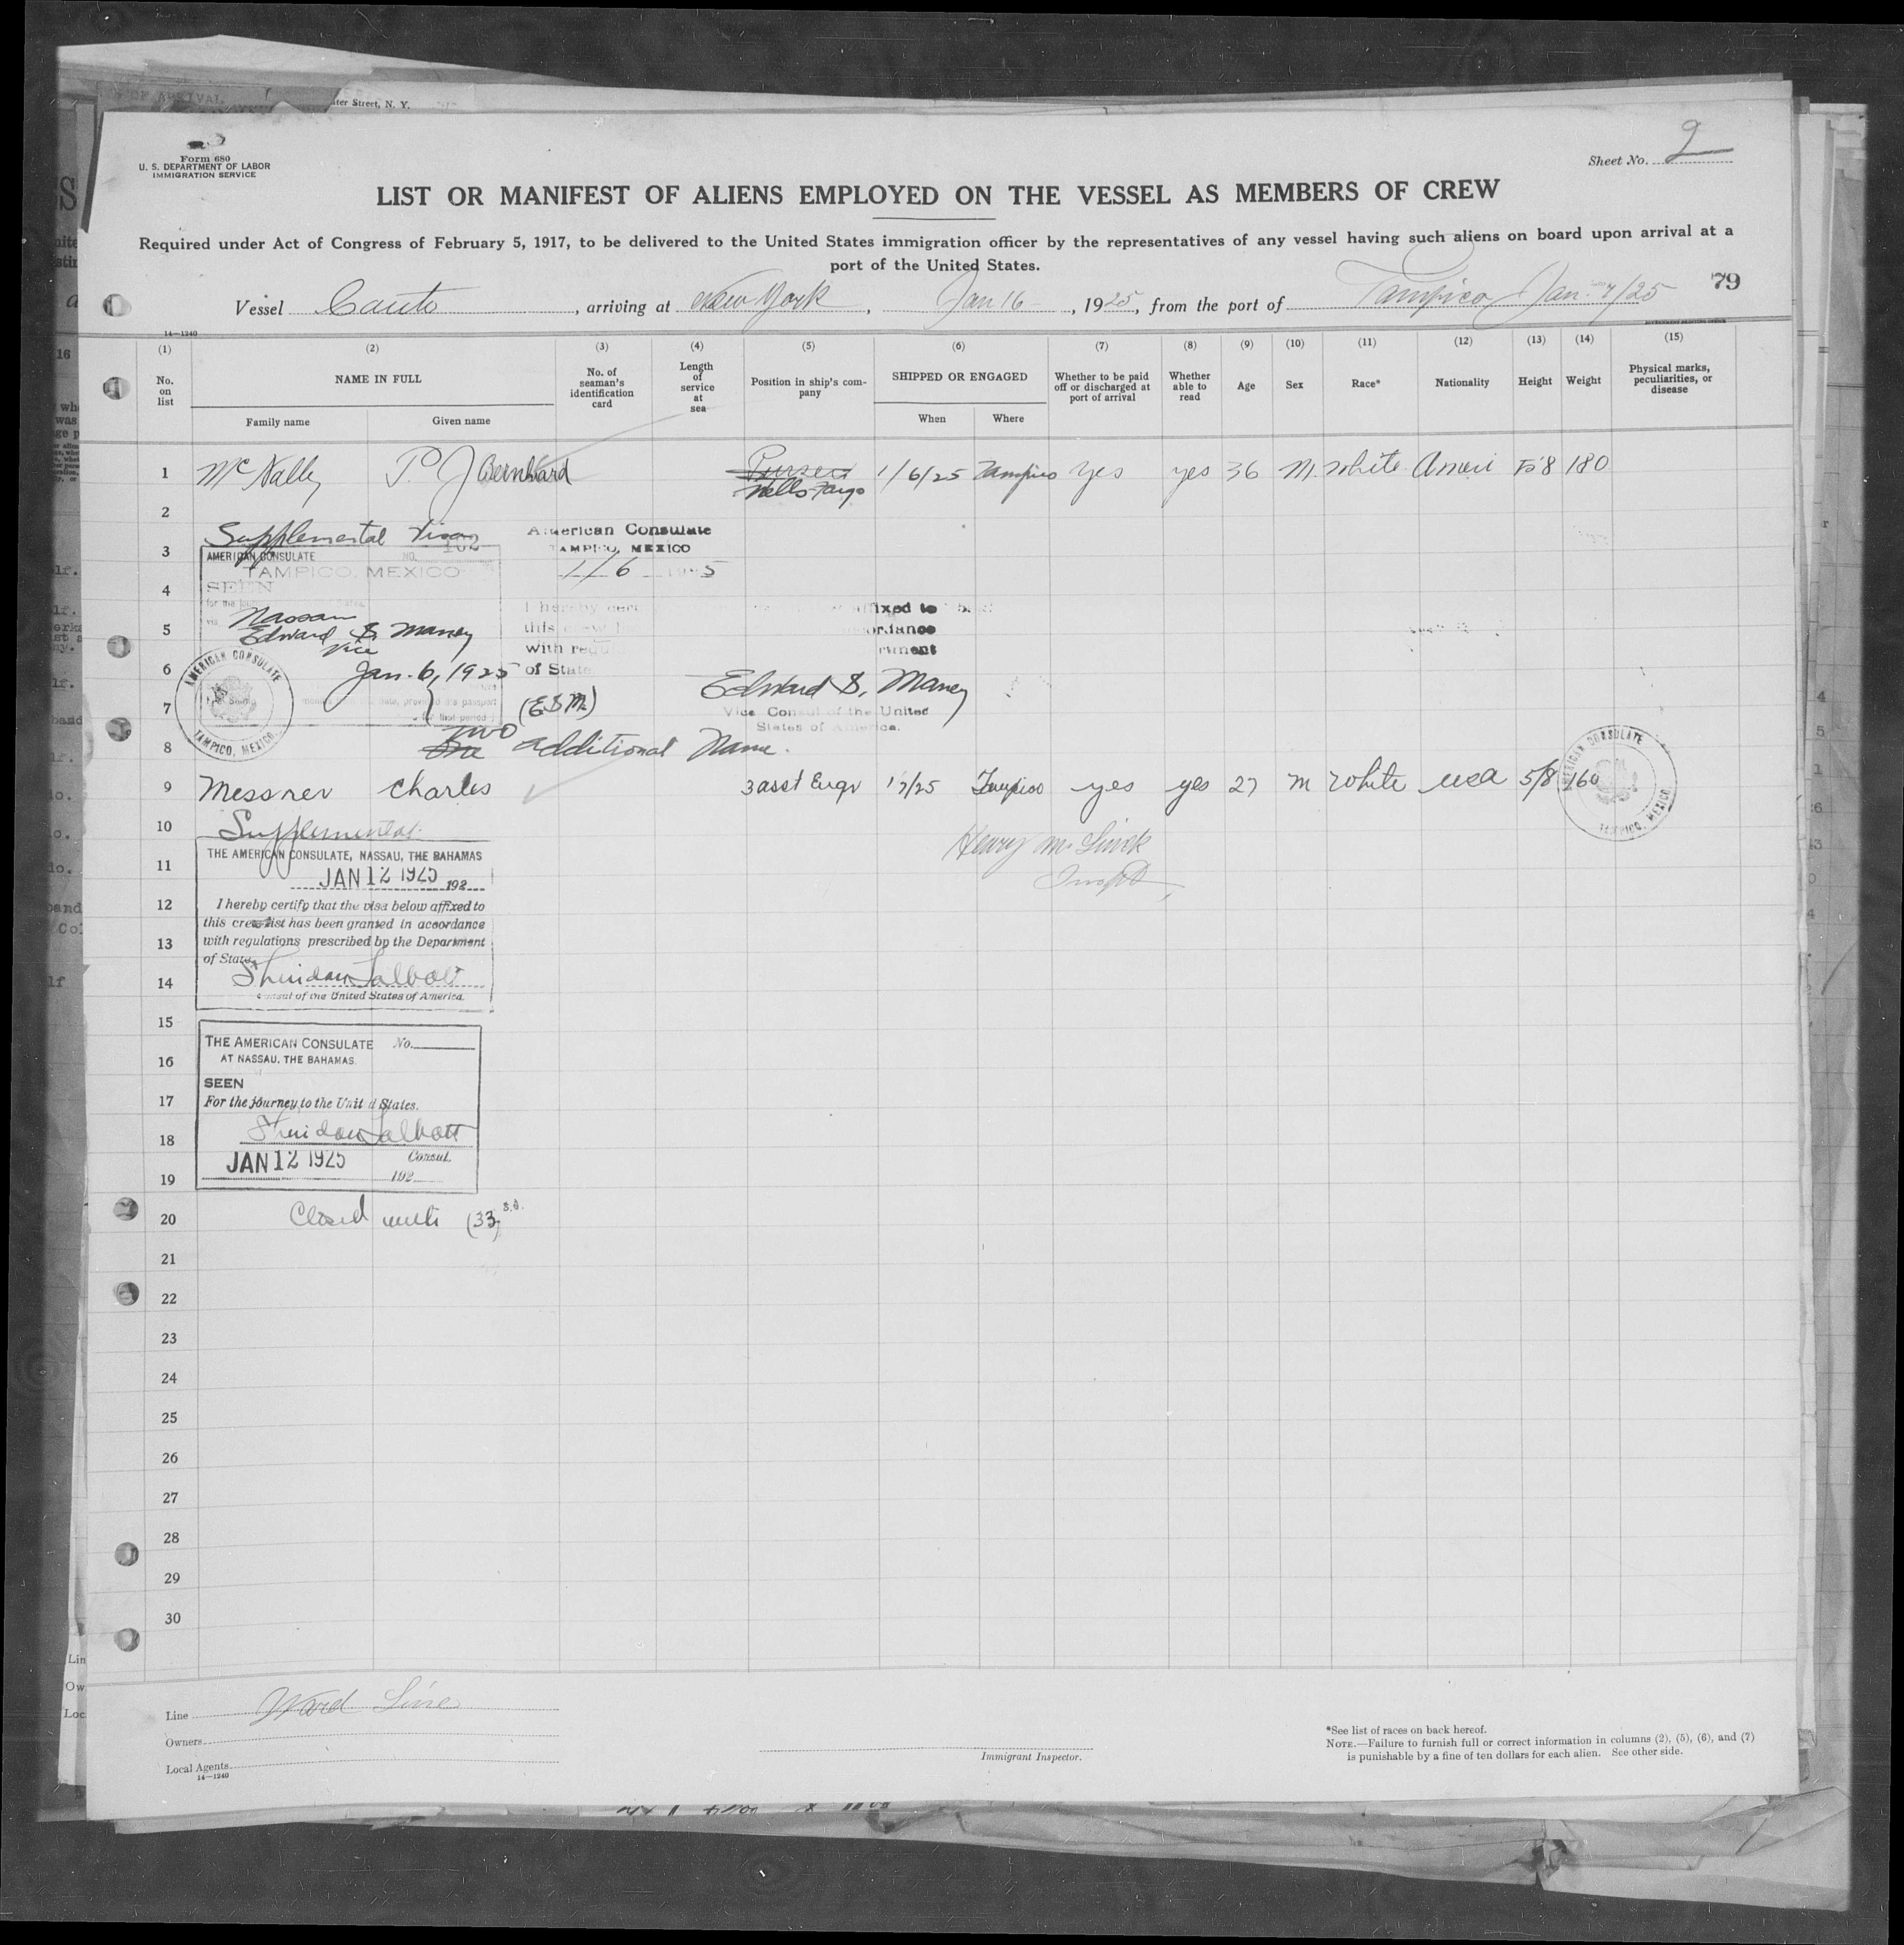 ter Street, N. Y.
Form 680
U. S. DEPARTMENT OF LABOR
IMMIGRATION SERVICE
Sheet No. 2
LIST OR MANIFEST OF ALIENS EMPLOYED ON THE VESSEL AS MEMBERS OF CREW
Required under Act of Congress of February 5, 1917, to be delivered to the United States immigration officer by the representatives of any vessel having such aliens on board upon arrival at a
port of the United States.
79
Vessel Cauto, arriving at New York, Jan 16, 1925, from the port of Tampico Jan. 7/25
14—1240
(1) (2) (3) (4) (5) (6) (7) (8) (9) (10) (11) (12) (13) (14) (15)
No. on list NAME IN FULL No. of seaman's identification card Length of service at sea Position in ship's company SHIPPED OR ENGAGED Whether to be paid off or discharged at port of arrival Whether able to read Age Sex Race* Nationality Height Weight Physical marks, peculiarities, or disease
Family name Given name When Where
1 McNally P. J Bernhard Purser 1/6/25 Tampico yes yes 36 M. White Ameri 5'8 180
Wells Fargo
2
Supplemental Visa American Consulate
3 AMERICAN CONSULATE NO. 102 TAMPICO, MEXICO
TAMPICO, MEXICO 1/6 1925
4 SEEN
Nassau I hereby cert affixed to
5 Edward S. Maney this crew ordance
Vice with regu rtment
6 Jan. 6, 1925 of State
AMERICAN CONSULATE TAMPICO, MEXICO
7 (ESM) Edward S. Maney
Vice Consul of the United
States of America.
8 Two One additional Name.
9 Messner Charles 3 asst Engr 1/7/25 Tampico yes yes 27 M White USA 5/8 160
AMERICAN CONSULATE TAMPICO, MEXICO
10 Supplemental
11 THE AMERICAN CONSULATE, NASSAU, THE BAHAMAS
JAN 12 1925 192
12 I hereby certify that the visa below affixed to
this crew list has been granted in accordance
13 with regulations prescribed by the Department
of State.
14 Sheridan Talbott
Consul of the United States of America.
15
THE AMERICAN CONSULATE No.
16 AT NASSAU, THE BAHAMAS.
SEEN
17 For the journey to the United States.
18 Sheridan Talbott
JAN 12 1925 Consul.
19 192
20 Closed with (33) S.T.
21
22
23
24
25
26
27
28
29
30
Line Ward Line
Owners
Local Agents
14—1240
Immigrant Inspector.
*See list of races on back hereof.
NOTE.—Failure to furnish full or correct information in columns (2), (5), (6), and (7)
is punishable by a fine of ten dollars for each alien. See other side.